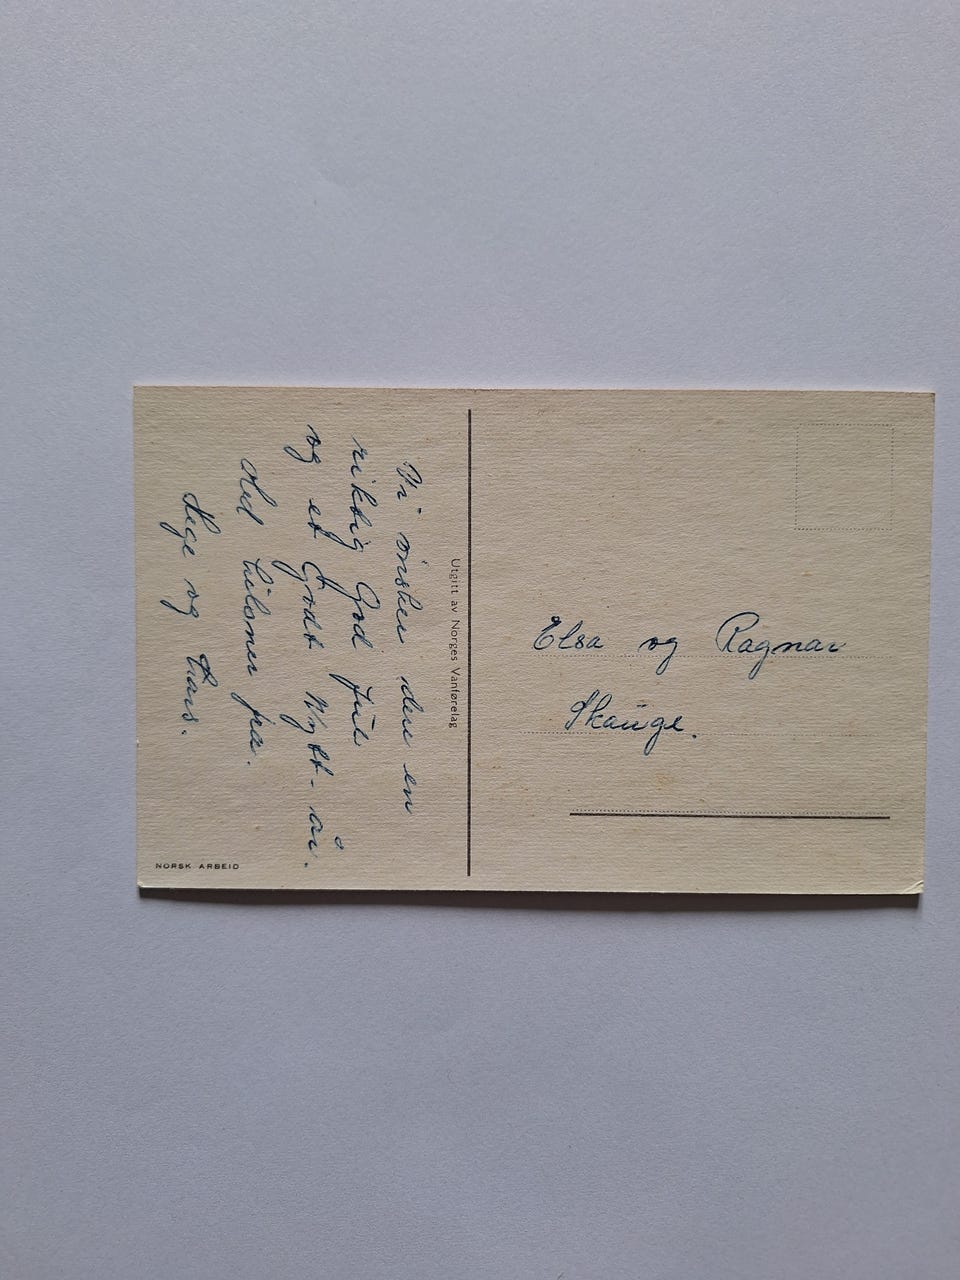 Vi ønsker dere en
riktig God Jul
og et Godt Nytt-år.
Med hilsner fra.
og Lars.
Utgitt av Norges Vanførelag
NORSK ARBEID
Elsa og Ragnar
Skauge.